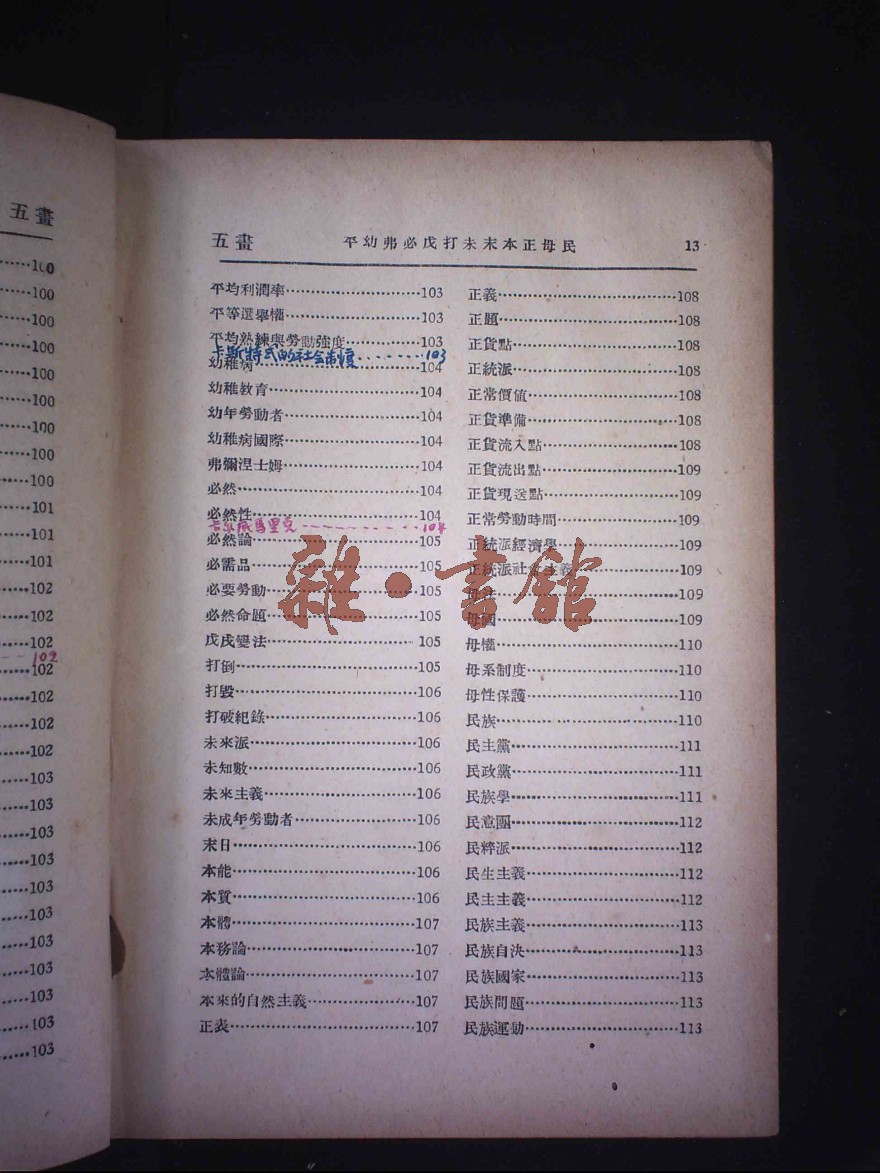 五畫
100
100
100
100
100
100
100
100
100
101
101
101
102
102
102
102
102
102
102
102
103
103
103
103
103
103
103
103
103
103
103
五畫 平幼弗必戊打未末本正母民 13
平均利潤率 103
平等選舉權 103
平均熟練與勞動強度 103
卡斯特式的社会制度 103
幼稚病 104
幼稚教育 104
幼年勞動者 104
幼稚病國際 104
弗彌涅士姆 104
必然 104
必然性 104
104
必然論 105
必需品 105
必要勞動 105
必然命題 105
戊戌變法 105
打倒 105
打毀 106
打破紀錄 106
未來派 106
未知數 106
未來主義 106
未成年勞動者 106
末日 106
本能 106
本質 106
本體 107
本務論 107
本體論 107
本來的自然主義 107
正表 107
正義 108
正題 108
正貨點 108
正統派 108
正常價值 108
正貨準備 108
正貨流入點 108
正貨流出點 109
正貨現送點 109
正常勞動時間 109
正統派經濟學 109
正統派社會主義 109
母法 109
母國 109
母權 110
母系制度 110
母性保護 110
民族 110
民主黨 111
民政黨 111
民族學 111
民意團 112
民粹派 112
民生主義 112
民主主義 112
民族主義 113
民族自決 113
民族國家 113
民族問題 113
民族運動 113
雜·書館